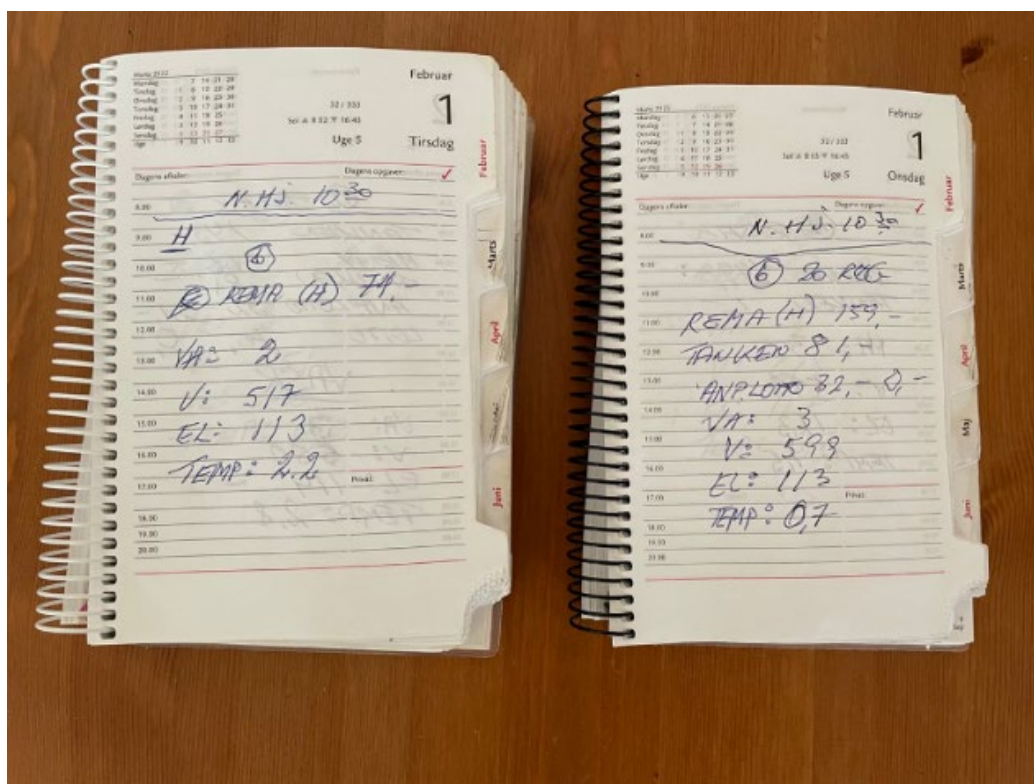 Februar
1
32 / 333
Uge 5
Tirsdag
Dagens aftaler:
Dagens opgaver:
8.00
N. HJ. 10 30
9.00
H
10.00
6
11.00
REMA (H) 74,-
12.00
13.00
VA: 2
14.00
V: 517
15.00
EL: 113
16.00
TEMP: 2.2
17.00
Privat:
18.00
19.00
20.00
Februar
Marts
April
Juni
Februar
1
32 / 333
Uge 5
Onsdag
Dagens aftaler:
Dagens opgaver:
8.00
N. HJ. 10 30
9.00
6 20
10.00
11.00
REMA (H) 159,-
12.00
TANKEN 81,
13.00
32,- 0,-
14.00
VA: 3
15.00
V: 599
16.00
EL: 113
17.00
Privat:
TEMP: 0,7
18.00
19.00
20.00
Februar
Marts
April
Maj
Juni